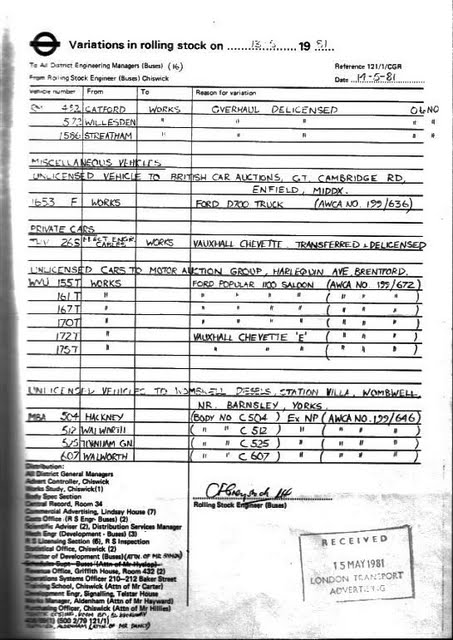 Variations in rolling stock on 13.5 19 81.
To All District Engineering Managers (Buses) (16)
Reference 121/1/CGR
From Rolling Stock Engineer (Buses) Chiswick
Date 14-5-81
Vehicle number From To Reason for variation
452 CATFORD WORKS OVERHAUL DELICENSED
WILLESDEN " " "
1586 STREATHAM " " " " "
MISCELLANEOUS VEHICLES
UNLICENSED VEHICLE TO BRITISH CAR AUCTIONS, GT. CAMBRIDGE RD,
ENFIELD, MIDDX.
1653 F WORKS FORD D700 TRUCK (AWCA NO. 199/636)
PRIVATE CARS
265 WORKS VAUXHALL CHEVETTE. TRANSFERRED & DELICENSED
UNLICENSED CARS TO MOTOR AUCTION GROUP, HARLEQUIN AVE, BRENTFORD.
WYU 155T WORKS FORD POPULAR 1100 SALOON (AWCA NO. 199/672)
161T " " " " " ( " " " )
167T " " " " " ( " " " )
170T " " " " " ( " " " )
172T " VAUXHALL CHEVETTE 'E' ( " " " )
175T " " " " ( " " " )
UNLICENSED VEHICLES TO WOMBWELL DIESELS, STATION VILLA, WOMBWELL,
NR. BARNSLEY, YORKS.
MBA 504 HACKNEY (BODY NO C504) EX NP (AWCA NO. 199/646)
512 WALWORTH ( " " C 512 ) " " ( " " " )
525 TOTTENHAM GN. ( " " C 525 ) " " ( " " " )
607 WALWORTH ( " " C 607 ) " " ( " " " )
Distribution:
All District General Managers
Advert Controller, Chiswick
Works Study, Chiswick(1)
Body Spec Section
Central Record, Room 34
Commercial Advertising, Lindsay House (7)
Costs Office (R S Engr- Buses) (2)
Scientific Adviser (2), Distribution Services Manager
Mech Engr (Development - Buses) (3)
R S Licensing Section (6), R S Inspection
Statistical Office, Chiswick (2)
Director of Development (Buses)
Schedules Supt - Buses (Attn of Mr Hyslop)
Press Office, Griffith House, Room 432 (2)
Operations Systems Officer 210-212 Baker Street
Training School, Chiswick (Attn of Mr Carter)
Development Engr, Signalling, Telstar House
Works Manager, Aldenham (Attn of Mr Hayward)
Purchasing Officer, Chiswick (Attn of Mr Hillies)
(500 2/79 121/1)
Rolling Stock Engineer (Buses)
RECEIVED
15 MAY 1981
LONDON TRANSPORT
ADVERTISING